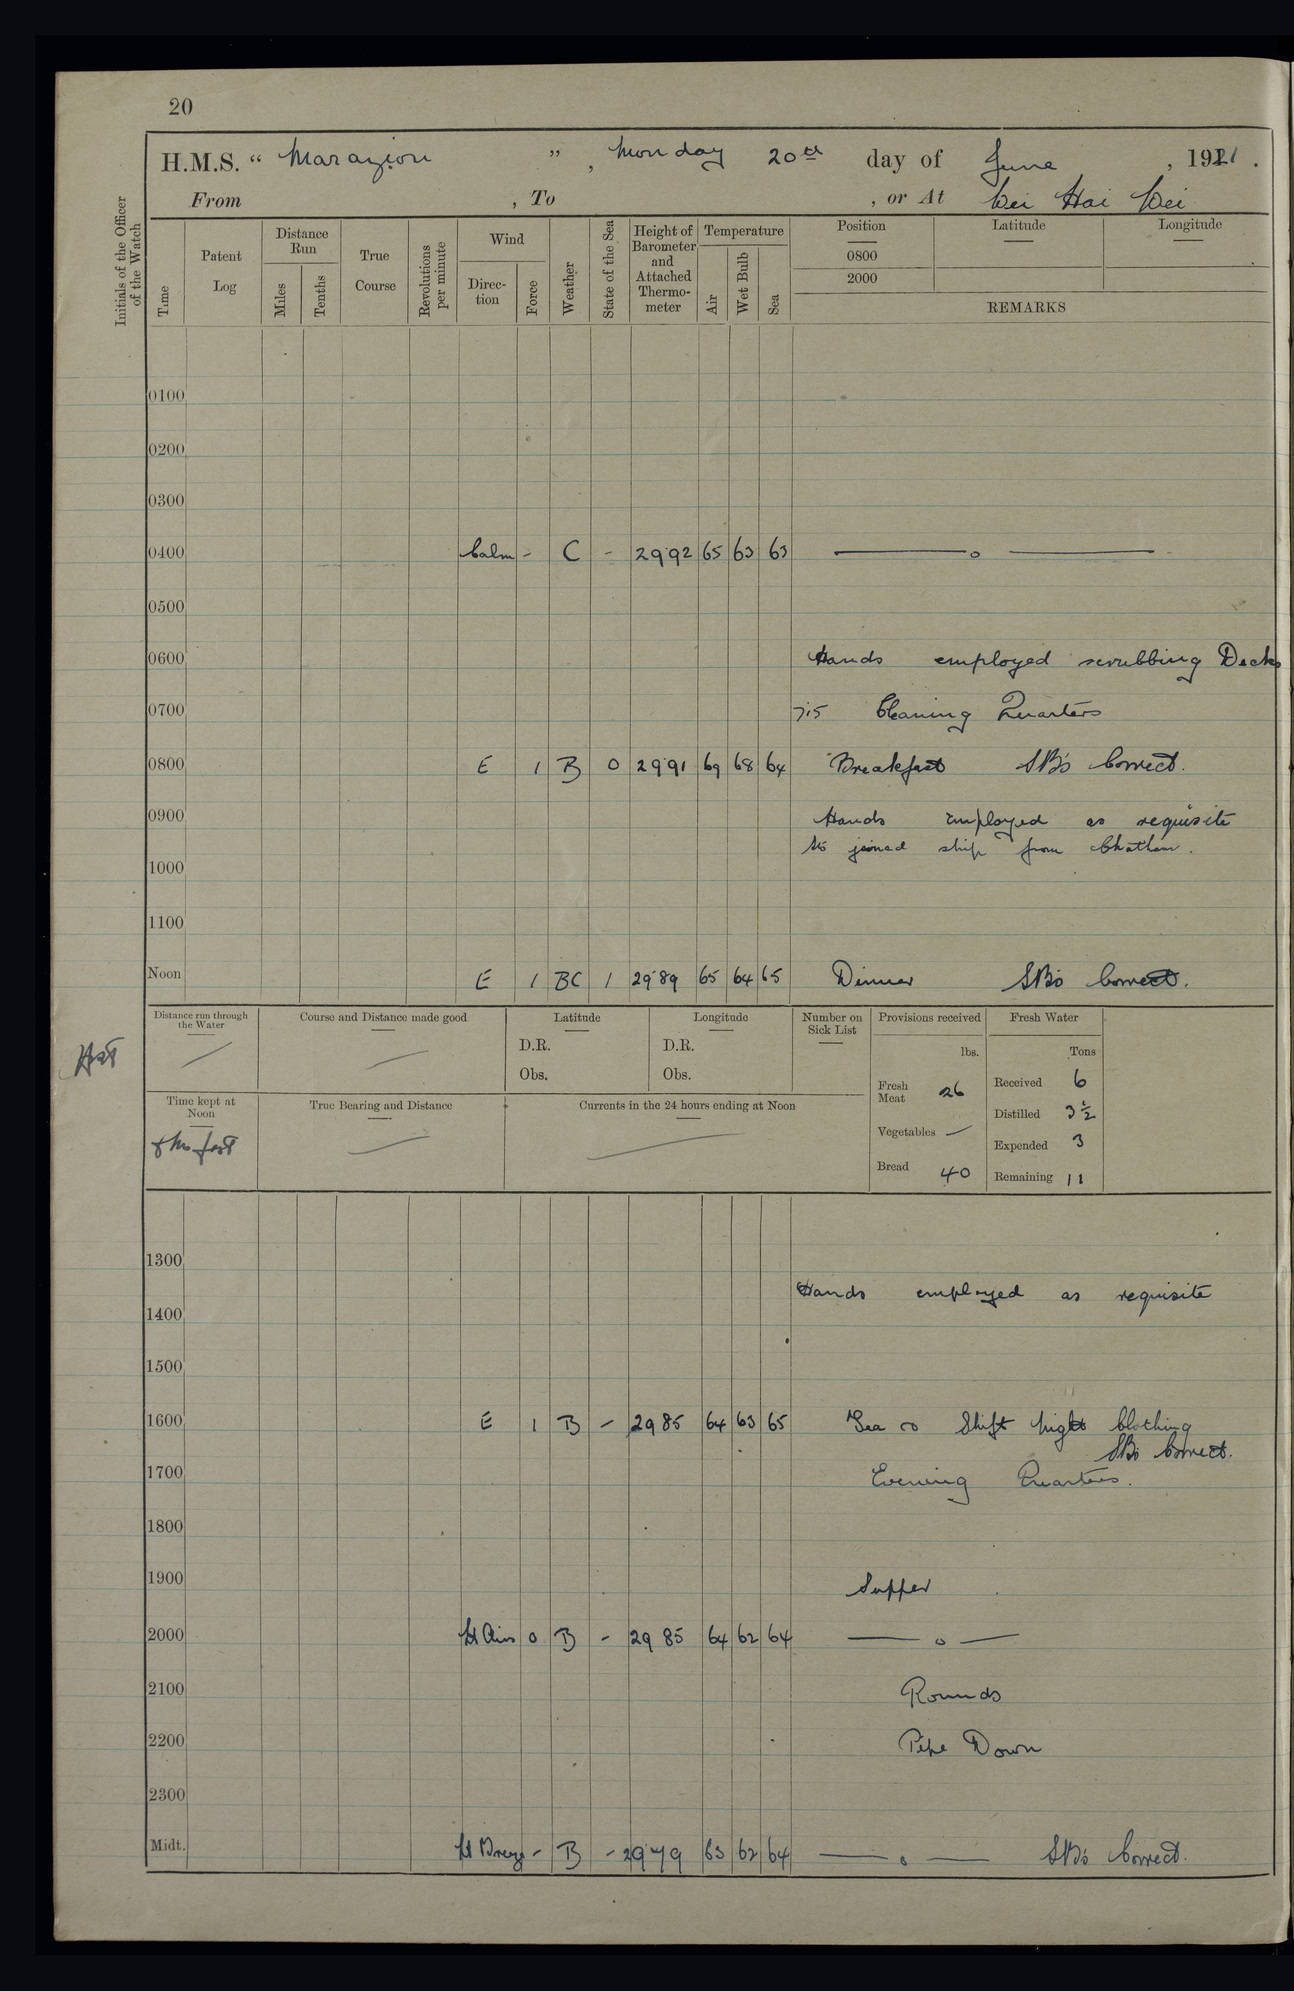 20
H.M.S. "Marazion", Monday 20th day of June, 1921.
From , To , or At Wei Hai Wei
Initials of the Officer of the Watch
Time
Patent Log
Distance Run
Miles
Tenths
True Course
Revolutions per minute
Wind
Direction
Force
Weather
State of the Sea
Height of Barometer and Attached Thermometer
Temperature
Air
Wet Bulb
Sea
Position Latitude Longitude
0800
2000
REMARKS
0100
0200
0300
0400 Calm - C - 29.92 65 63 63 —o—
0500
0600 Hands employed scrubbing Decks
0700 7.15 Cleaning Quarters
0800 E 1 B 0 29.91 69 68 64 Breakfast SBs Correct.
0900 Hands employed as requisite
joined ship from Chatham.
1000
1100
Noon E 1 BC 1 29.89 65 64 65 Dinner SBs Correct.
Distance run through the Water
Course and Distance made good
Latitude
D.R.
Obs.
Longitude
D.R.
Obs.
Number on Sick List
Provisions received
lbs.
Fresh Meat 26
Vegetables —
Bread 40
Fresh Water
Tons
Received 6
Distilled 3½
Expended 3
Remaining 11
Time kept at Noon
8 hrs fast
True Bearing and Distance
Currents in the 24 hours ending at Noon
1300
Hands employed as requisite
1400
1500
1600 E 1 B - 29 85 64 63 65 Tea & Shift night Clothing
SBs Correct.
1700 Evening Quarters.
1800
1900 Supper
2000 Lt Airs 0 B - 29 85 64 62 64 —o—
2100 Rounds
2200 Pipe Down
2300
Midt. Lt Breeze - B - 29 79 63 62 64 —o— SBs Correct.